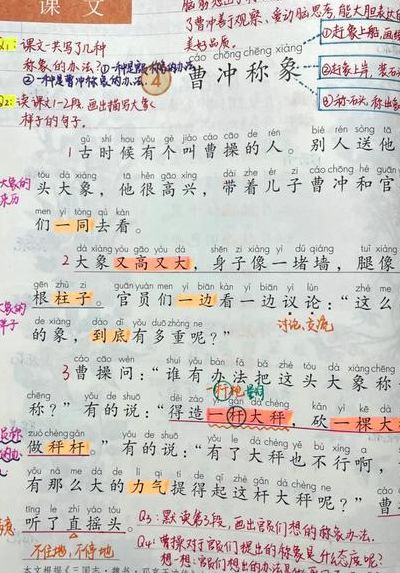 课文
了曹冲善于观察、爱动脑思考,能大胆表达
美好品质。
Q1: 课文一共写了几种
称象的办法?①一种是官员们的办法
②一种是曹冲称象的办法
①赶象上船,画线
②赶象上岸,装石
③称石头,称出象
cáo chōng chēng xiàng
4 曹冲称象
Q2: 读课文1-2段,画出描写大象
样子的句子。
gǔ shí hou yǒu gè jiào cáo cāo de rén bié rén sòng tā
1 古时候有个叫曹操的人。别人送他
tóu dà xiàng tā hěn gāo xìng dài zhe ér zi cáo chōng hé guān
头大象,他很高兴,带着儿子曹冲和官
大象的
来历
men yì tóng qù kàn
们一同去看。
dà xiàng yòu gāo yòu dà shēn zi xiàng yì dǔ qiáng tuǐ xiàng
2 大象又高又大,身子像一堵墙,腿像
gēn zhù zi guān yuán men yì biān kàn yì biān yì lùn zhè me
根柱子。官员们一边看一边议论:“这么
讨论、交流
大象的
样子
de xiàng dào dǐ yǒu duō zhòng ne
的象,到底有多重呢?”
cáo cāo wèn shuí yǒu bàn fǎ bǎ zhè tóu dà xiàng chēng
3 曹操问:“谁有办法把这头大象称
chēng yǒu de shuō děi zào yì gǎn dà chèng kǎn yì kē dà
称?”有的说:“得造一杆大秤,砍一棵大
zuò chèng gǎn yǒu de shuō yǒu le dà chèng yě bù xíng a
做秤杆。”有的说:“有了大秤也不行啊,
yǒu nà me dà de lì qi tí de qǐ zhè gǎn dà chèng ne cáo
有那么大的力气提得起这杆大秤呢?”曹
tīng le zhí yáo tóu
听了直摇头。
不住地,不停地
Q3: 默读第3段,画出官员们想的称象办法.
Q4: 曹操对于官员们提出的称象是什么态度呢?